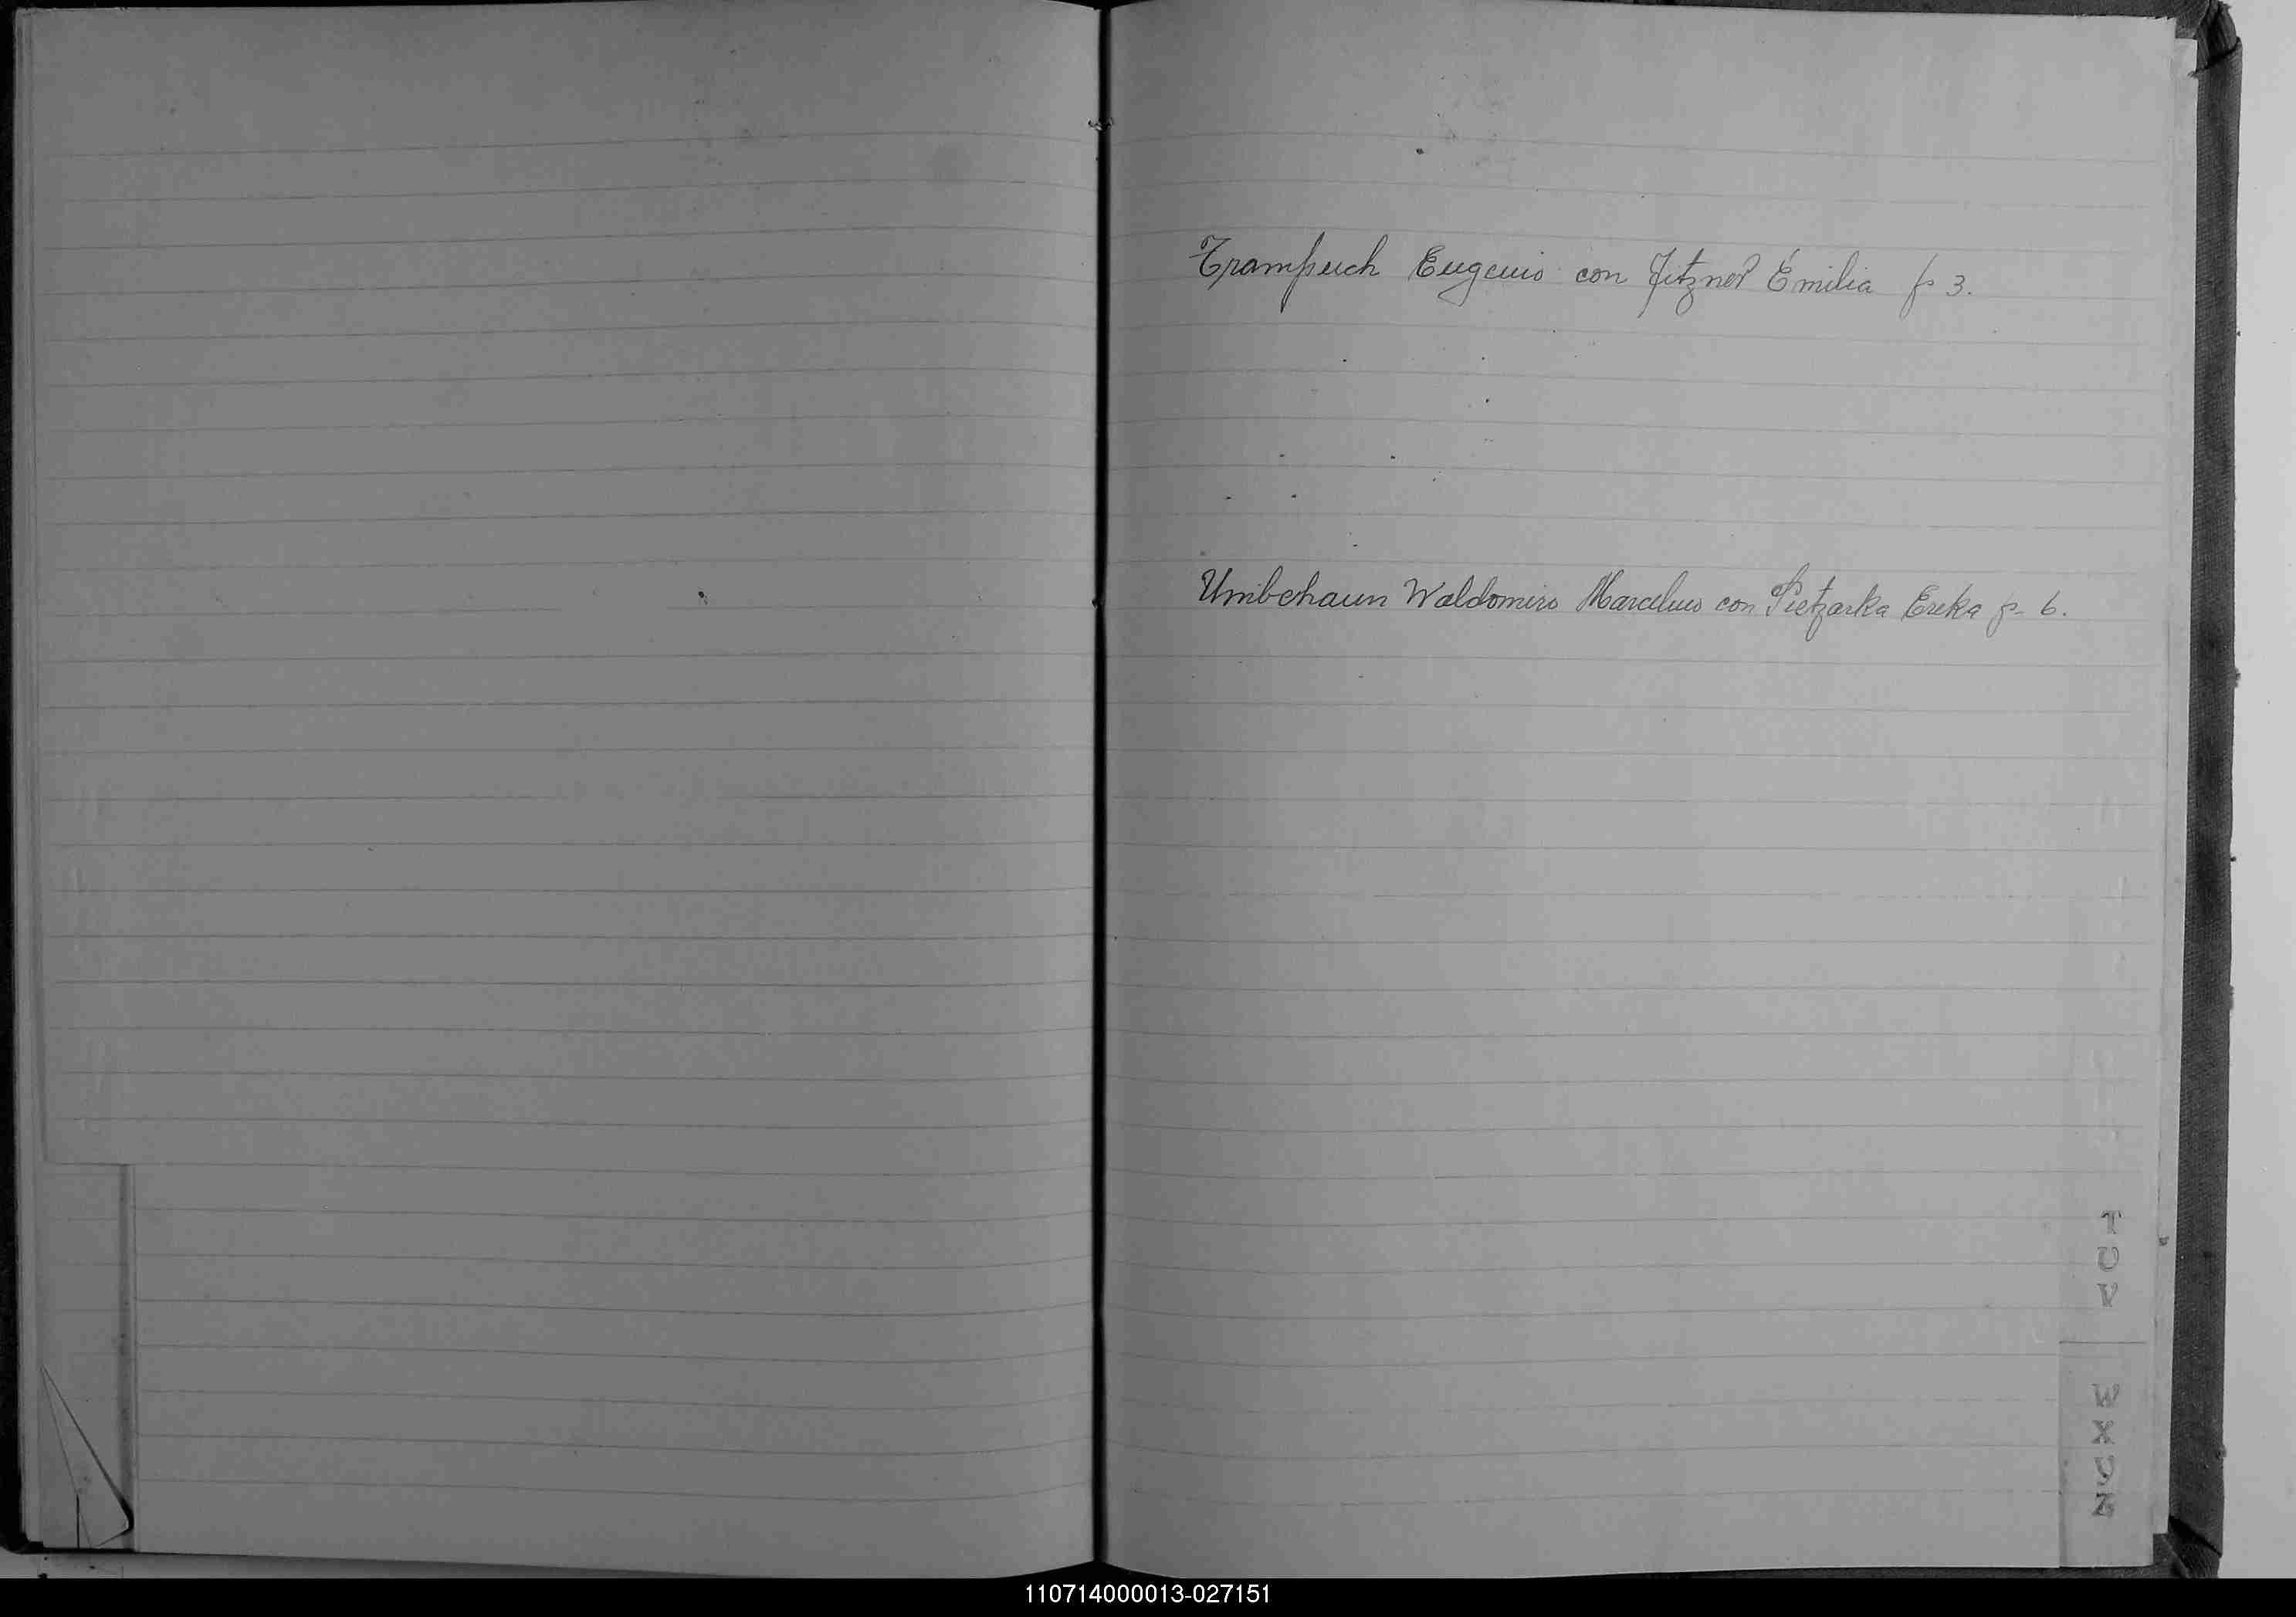 Trampuch Eugenio con Fitzner Emilia p 3.
Umbehaun Waldomiro Marcelino con Pietzarka Ereka p- 6.
T
U
V
W
X
Y
Z
110714000013-027151